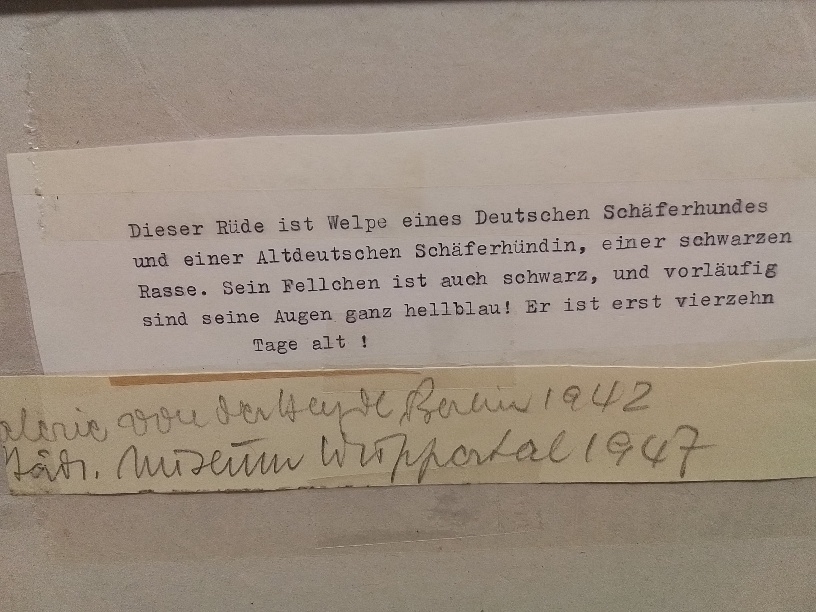 Dieser Rüde ist Welpe eines Deutschen Schäferhundes
und einer Altdeutschen Schäferhündin, einer schwarzen
Rasse. Sein Fellchen ist auch schwarz, und vorläufig
sind seine Augen ganz hellblau! Er ist erst vierzehn
Tage alt !
alerie von der Heyde Berlin 1942
Städt. Museum Wuppertal 1947